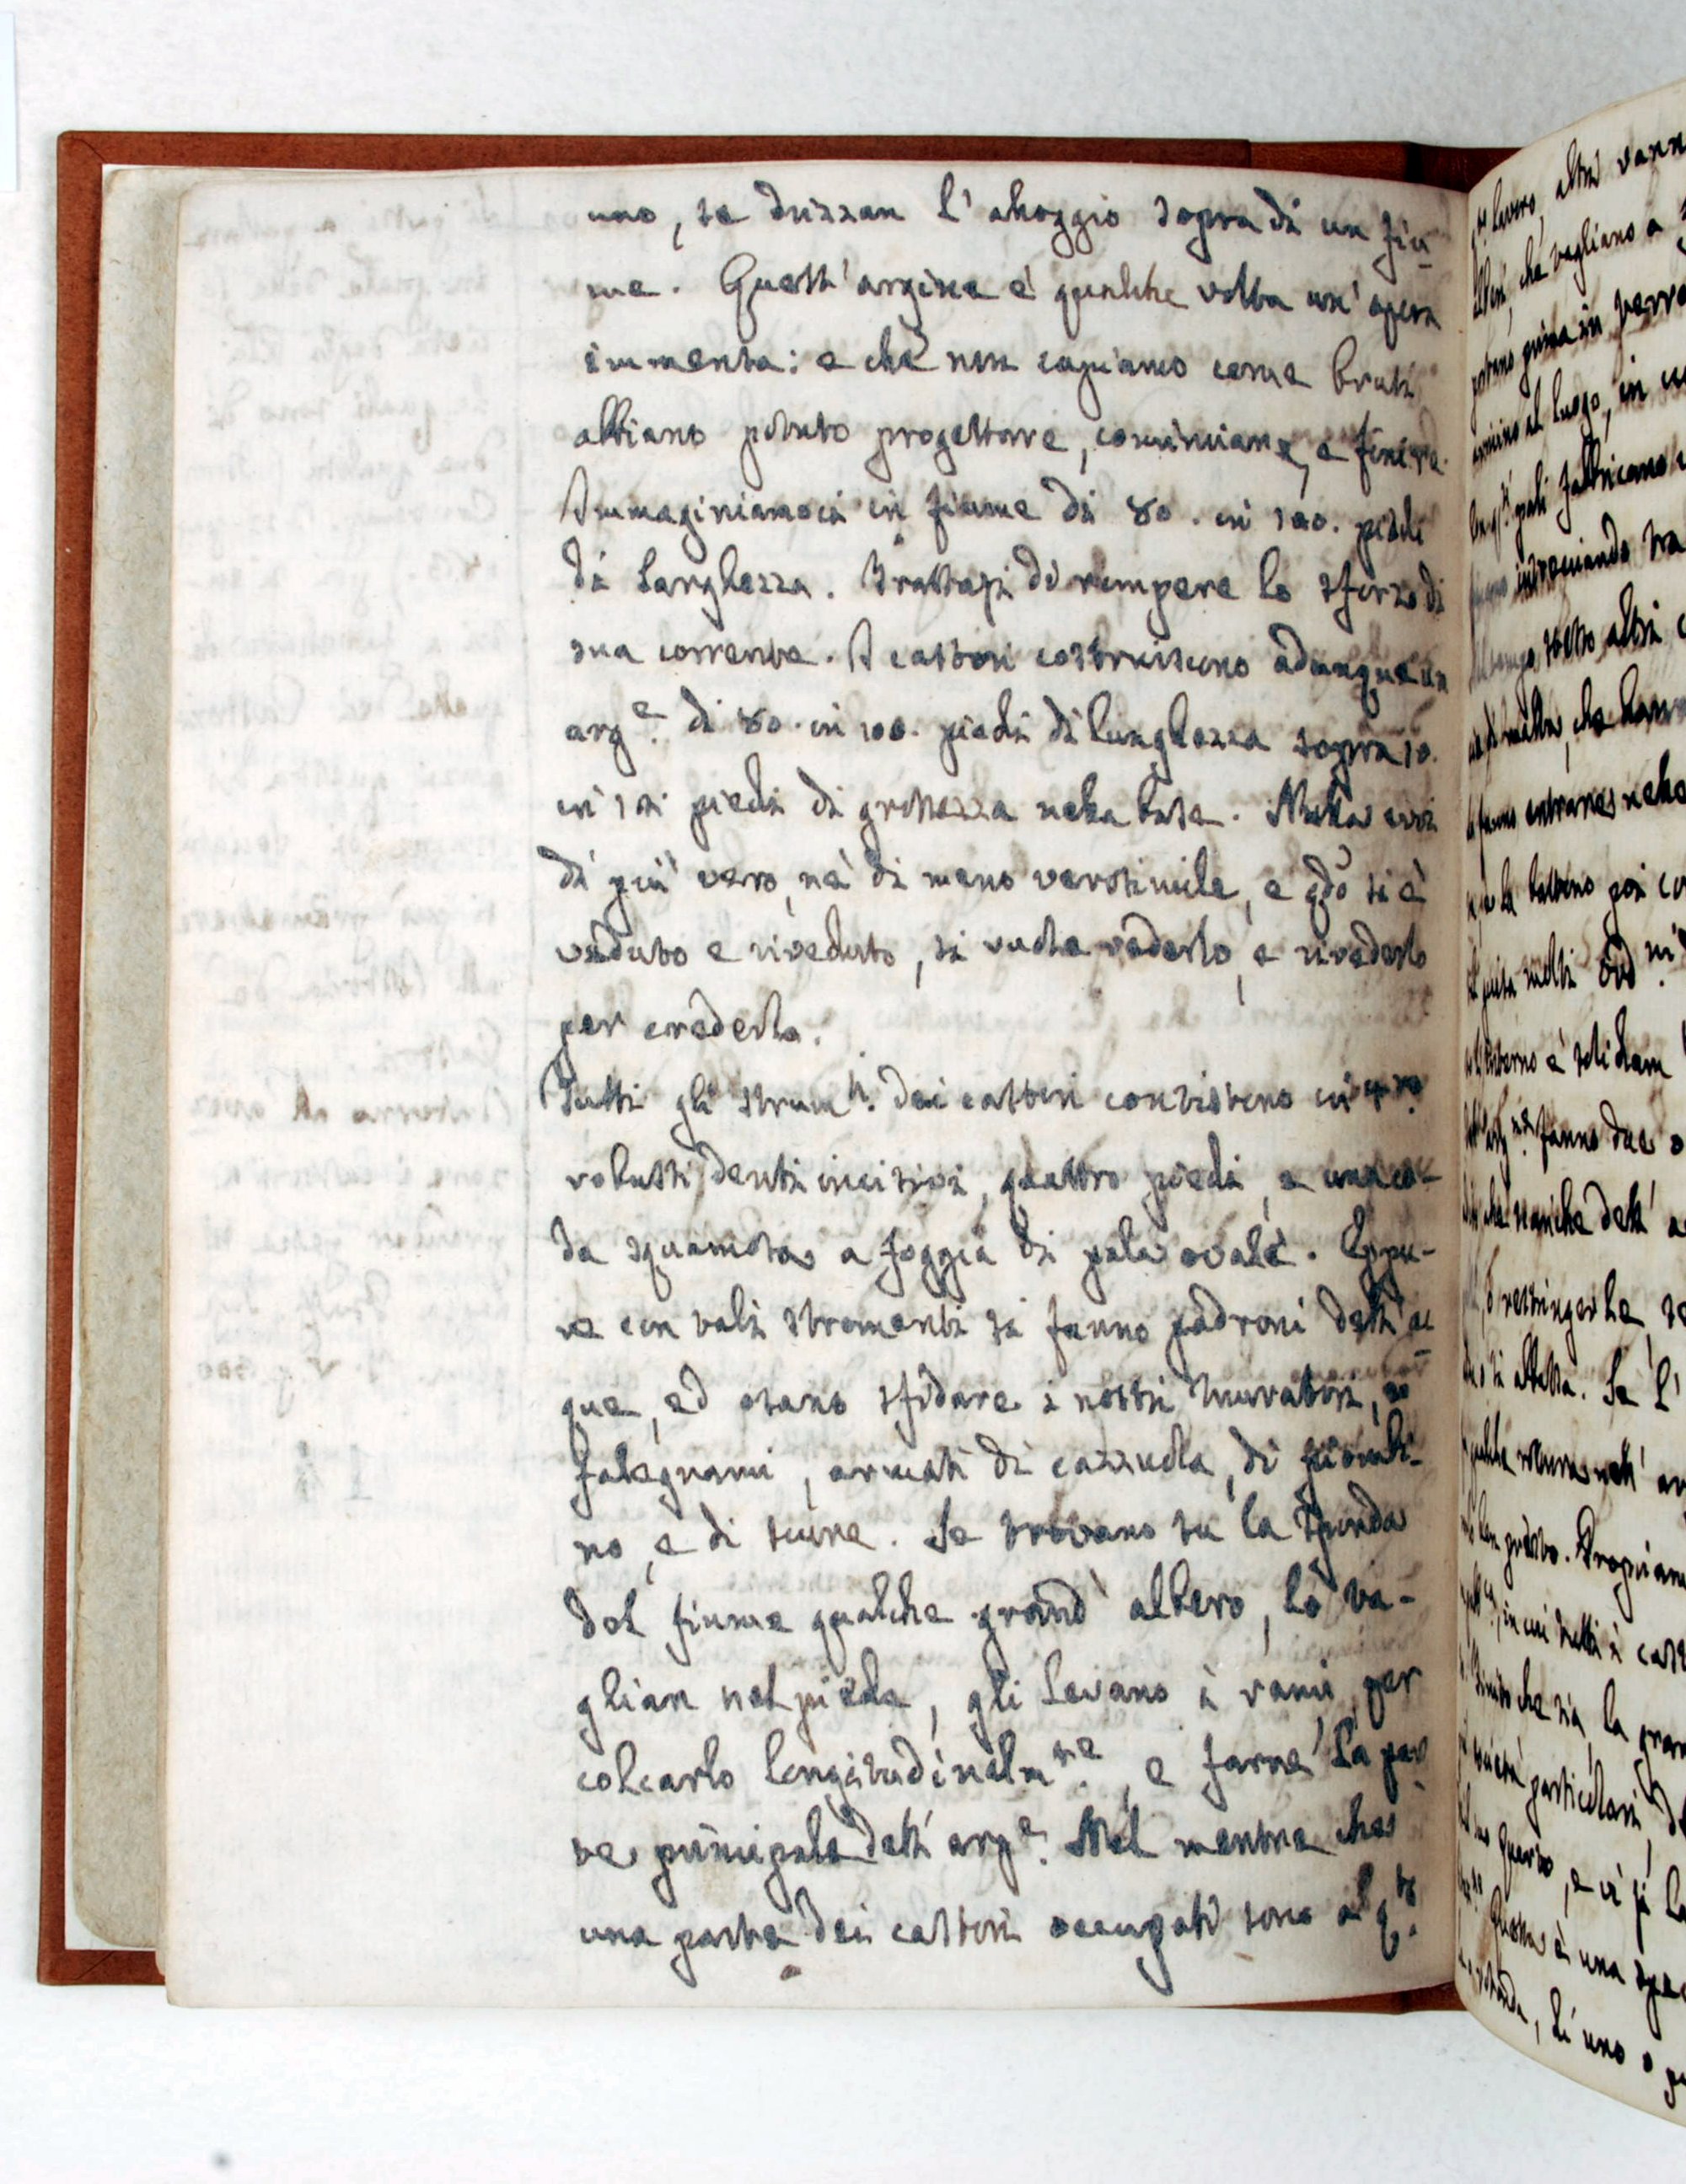 uno, se drizzan l'alloggio sopra di un fiu-
me. Quest'argine è qualche volta un'opera
immensa: e chè non capiamo come bruti
abbiano potuto progettare, cominciare, e finire.
Immaginiamoci un fiume di 80. in 100. piedi
di larghezza. Trattasi di rompere lo sforzo di
sua corrente. I castori costruiscono adunque un
arg.e di 80. in 100. piedi di lunghezza sopra 10.
in 12. piedi di grossezza nella base. Nulla evvi
di più vero, nè di meno verosimile, e qdo si è
veduto e riveduto, si vuole vederlo, e rivederlo
per crederlo.
Tutti gli strum.ti dei castori consistono in
robusti denti incisivi, quattro piedi, e una co-
da squamosa a foggia di pala ovale. Eppu-
re con tali stromenti si fanno padroni dell'ac-
que, ed osano sfidare i nostri muratori, e
falegnami, armati di cazzuola, di piombi-
no, e di scure. Se trovano su la sponda
del fiume qualche grand' albero, lo ta-
glian nel piede, gli levano i rami, per
colcarlo longitudinalm.te, e farne la par-
te principale dell' arg.e. Nel mentre che
una parte dei castori occupati sono a q.to
lavoro, altri vann
che vagliano a
prima in
al luogo, in
pali fabbricano
intrecciando
sotto altri
che
entrare nello
poi co
molti
interno è
fanno due o
dell' a
restringerla, se
Se l'
nell' ar
presto.
in cui
che sia la gran
particolari, d
e vi si
è una spec
di uno o